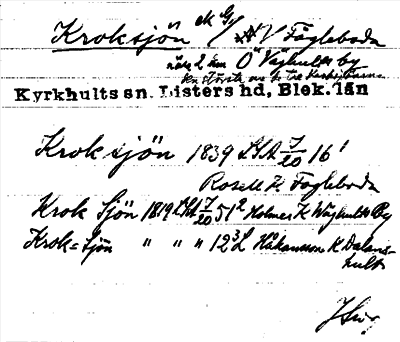 Kroksjön V Fågleboda
nära 2 km Ö Väghults by
den största av de tre
Kyrkhults sn. Listers hd, Blek. län
Kroksjön 1839 LSA 7/20 16¹
Rosell K Fågleboda
Krok Sjön 1819 LSA 7/20 51² Holmer K Wäghults By
Krok=Sjön " " " 12³ L Håkansson K Dalans-
hult